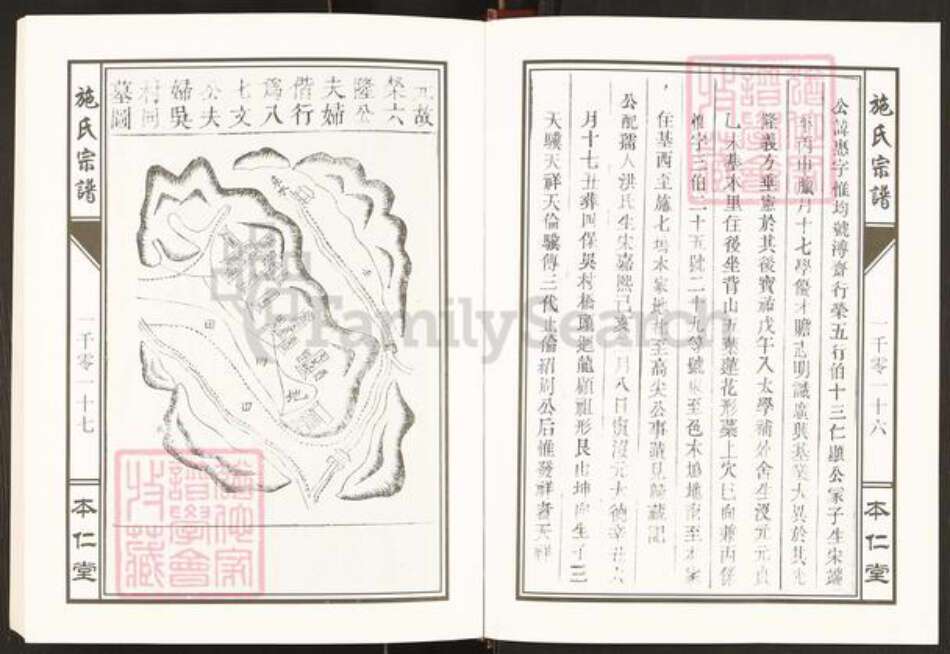 施氏宗譜
一千零一十六
本仁堂
公諱惠字惟均號溥齋行榮五行伯十三仁顯公冢子生宋端
丙申臘月十七學優才贍志明識廣與基業大異於其先
隆義方垂憲於其後寶祐戊午入太學補外舍生沒元元貞
乙未基本里住後坐背山五葉蓮花形葉上穴巳向兼丙係
字三伯二十五號二十九等號東至邑木塢地南至本家
住基西至 七塢本家地北至高尖公事蹟見 藏記
公配孺人洪氏生宋嘉熙己亥 月八日 沒元大德辛丑六
月十七丑葬四保吳村 迴龍顧祖形艮山坤向生子三
天驥天祥天倫驥傳三代止倫紹別公后惟發祥者天祥
施氏宗譜
一千零一十七
本仁堂
元故
榮六
隆公
夫婦
偕行
爲八
七文
公夫
婦吳
村同
墓圖
田
田
田
地
FamilySearch